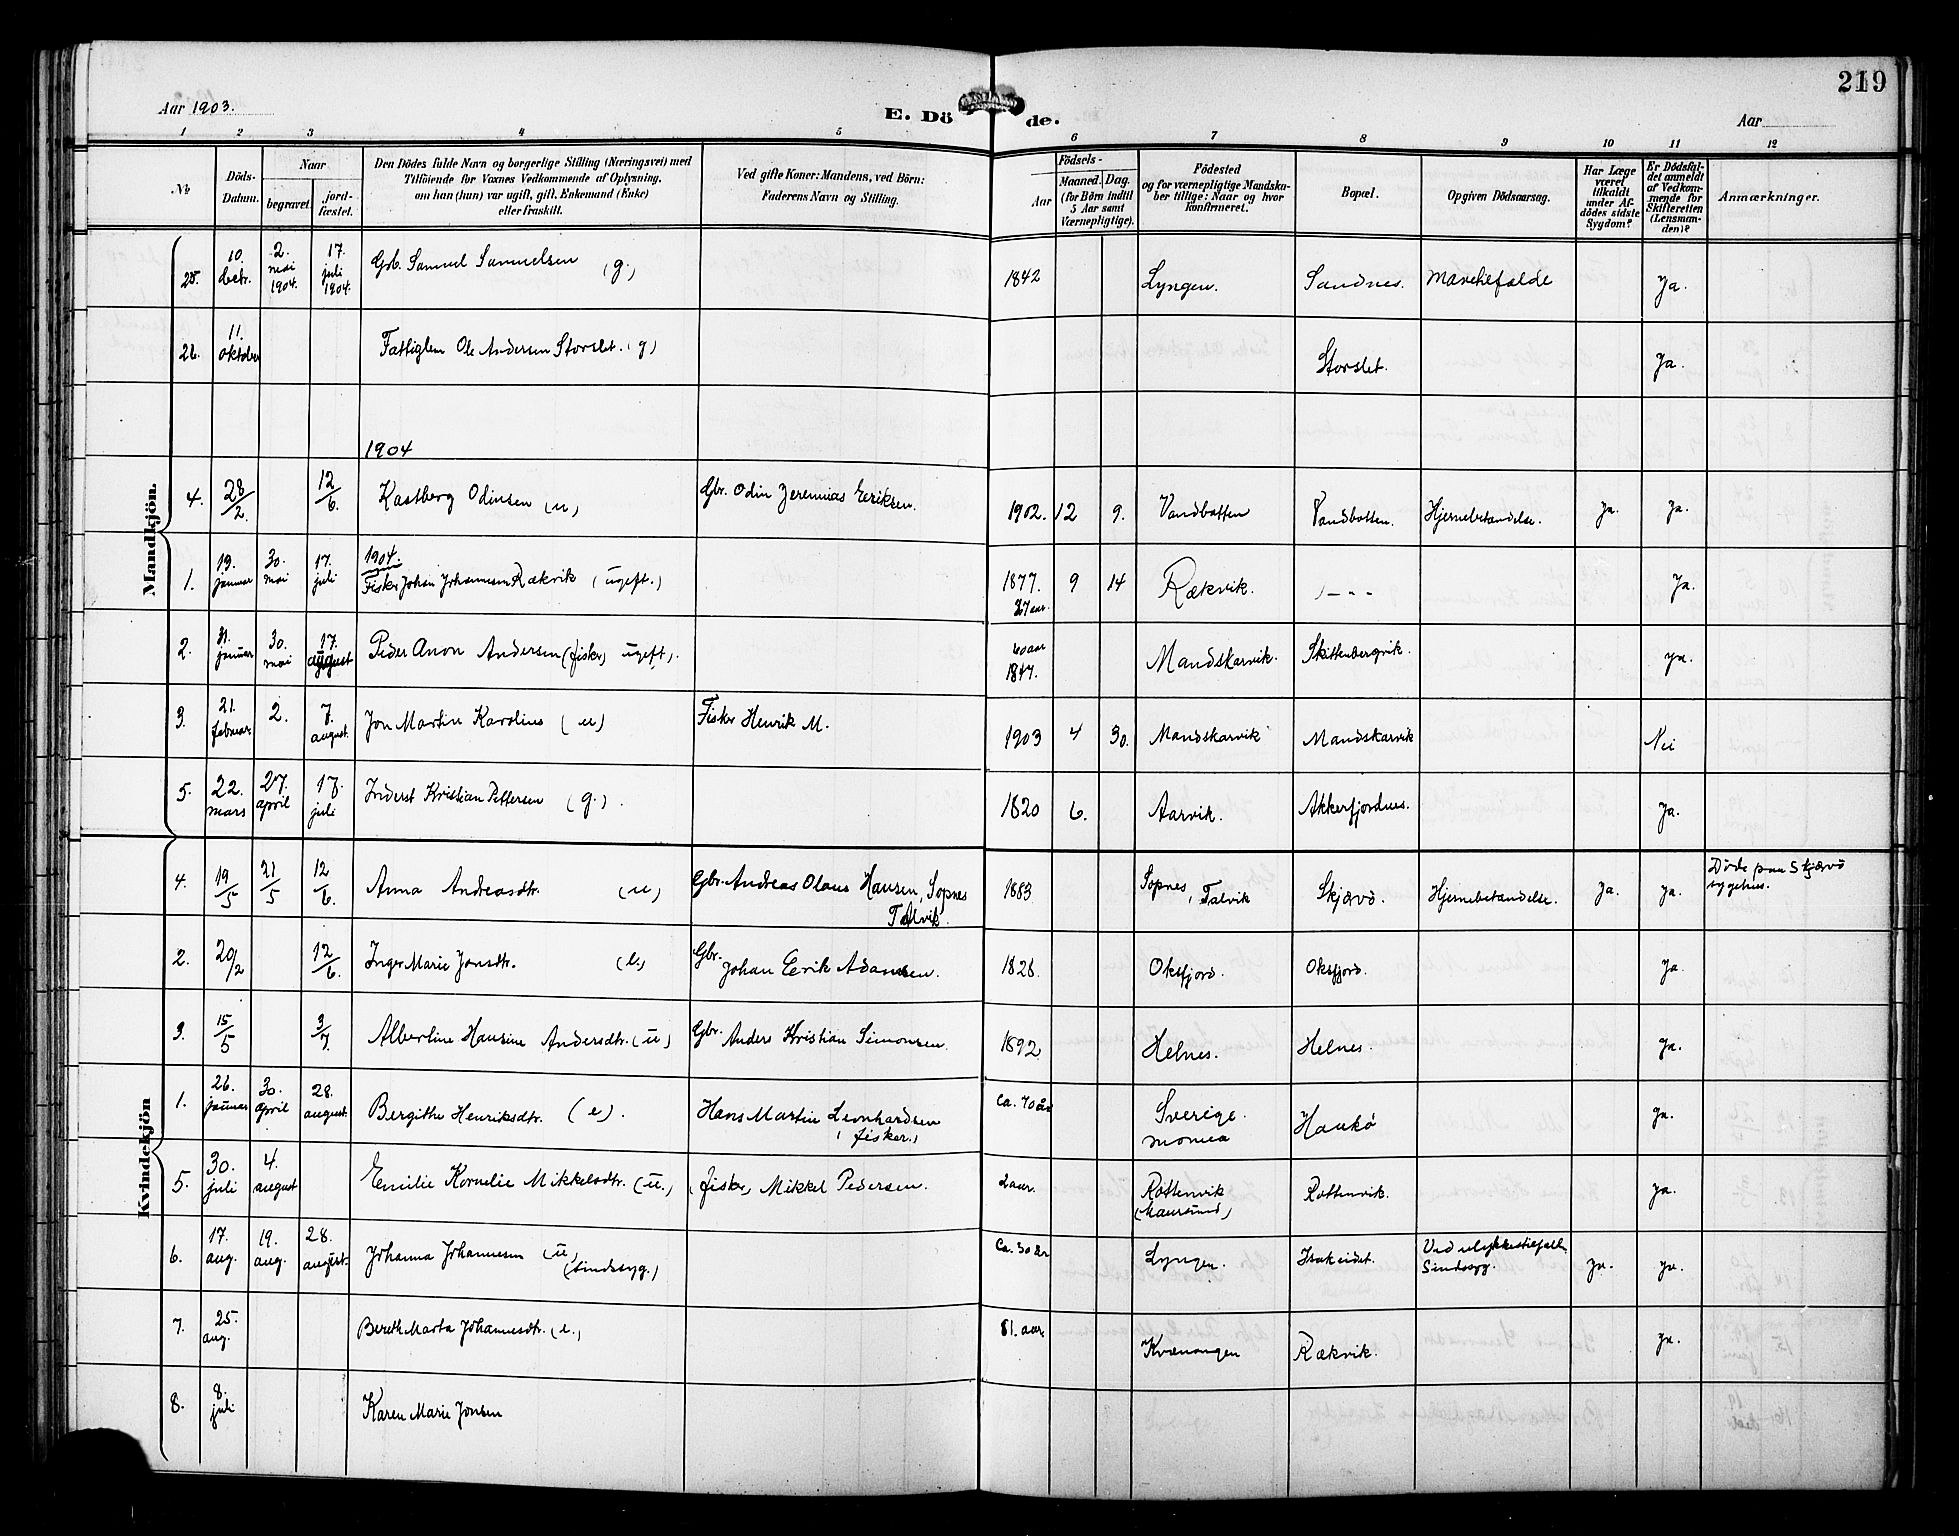 219
Aar 1903.
E. Dö de.
Aar
1 2 3 4 5 6 7 8 9 10 11 12
No
Döds-Datum.
Naar
begravet.
jord-fæstet.
Den Dödes fulde Navn og borgerlige Stilling (Næringsvei) med
Tilföiende for Voxnes Vedkommende af Oplysning,
om han (hun) var ugift, gift, Enkemand (Enke)
eller fraskilt.
Ved gifte Koner: Mandens, ved Börn:
Faderens Navn og Stilling.
Födsels-
Aar
Maaned. Dag.
(for Börn indtil
5 Aar samt
Værnepligtige).
Födested
og for værnepligtige Mandska-
ber tillige: Naar og hvor
konfirmeret.
Bopæl.
Opgiven Dödsaarsag.
Har Læge
været
tilkaldt
under Af-
dödes sidste
Sygdom?
Er Dödsfal-
det anmeldt
af Vedkom-
mende for
Skifteretten
(Lensman-
den)?
Anmærkninger.
Mandkjön.
25. 10. decbr. 2. mai 1904. 17. juli 1904. Gb. Samuel Samuelsen (g.) 1842 Lyngen. Sandnes. Ja.
26. 11. oktober Fattiglem Ole Andersen Storslet. (g) Storslet. Ja.
1904
4. 28/2. 12/6. Kastberg Odinsen (u) Gbr. Odin Jeremias Eriksen. 1902. 12 9. Vandbotten Vandbotten. Hjernebetændelse. Ja. Ja.
1904.
1. 19. januar 30. mai 17. juli Fisker Johan Johannesen Rækvik (ugift.) 1877. 27 aar. 9 14 Rækvik. - - - Ja.
2. 31. januar 30. mai 17. august Peder Anon Andersen (fisker) ugift). 60 aar 1847. Mandskarvik. Skittenbergvik. Ja.
3. 21. februar. 2. 7. august. Jon Martin Karolius (u) Fisker Henrik M. 1903 4 30. Mandskarvik Mandskarvik Nei
5. 22. mars 27. april 17. juli Inderst Kristian Pettersen (g.). 1820 6. Aarvik. Akkerfjordnes. Ja.
Kvindekjön
4. 19/5 21/5 12/6. Anna Andreasdtr. (u) Gbr. Andreas Olaus Hansen, Sopnes Talvik. 1883 Sopnes, Talvik Skjærvö. Hjernebetændelse. Ja. Ja. Döde paa Skjærvö sygehus.
2. 20/2 12/6. Inger Marie Jonsdtr. (e.) Gbr. Johan Eerik Adamsen. 1826. Oksfjord. Oksfjord. Ja.
3. 15/5 3/7. Albertine Hansine Andersdtr. (u) Gbr. Anders Kristian Simonsen. 1892 Helnes. Helnes. Ja.
1. 26. januar 30. april 28. august. Bergithe Henriksdtr. (e). Hans Martin Leonhardsen (fisker.) Ca. 70 år Sverige Haukö Ja.
5. 30. juli 4. august Emilie Kornelie Mikkelsdtr. (u.) (fisker) Mikkel Pedersen. 2 aar. Rottenvik (Maursund) Rottenvik. Ja.
6. 17. aug. 19. aug. 28. august. Johanna Johannesen (u) (sindssyg.) Ca. 30 år Lyngen. Isakeidet. Ved ulykkestilfælde. Sindssyg. Ja. Ja.
7. 25. aug. Bereth Marta Johannesdtr. (e.) 81. aar. Kvænangen Rækvik. Ja.
8. 8. juli Karen Marie Jonsen